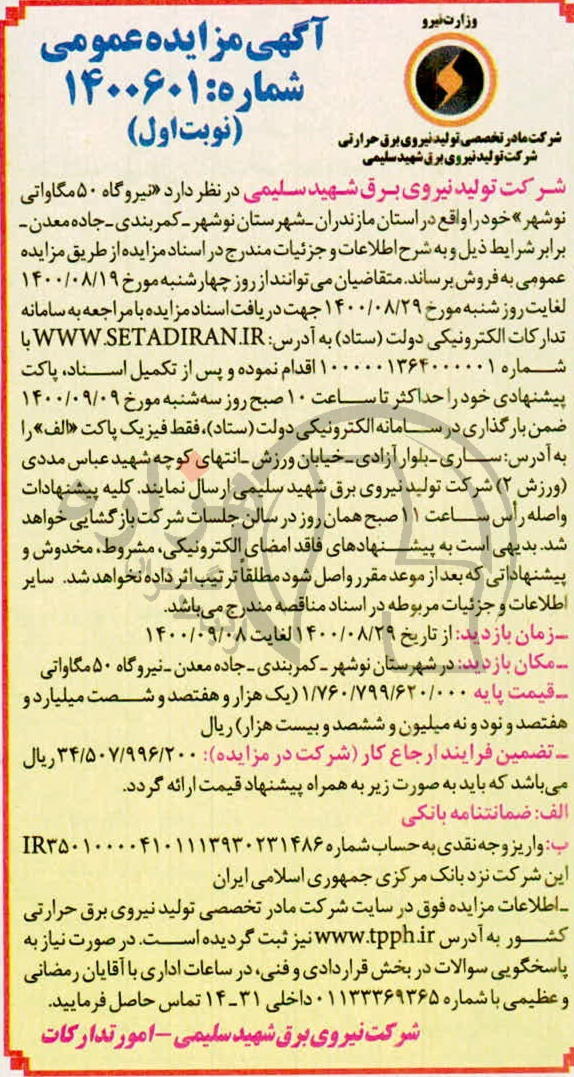 وزارت نیرو
شرکت مادر تخصصی تولید نیروی برق حرارتی
شرکت تولید نیروی برق شهید سلیمی
آگهی مزایده عمومی
شماره: ۱۴۰۰۶۰۱
(نوبت اول)
شرکت تولید نیروی برق شهید سلیمی در نظر دارد «نیروگاه ۵۰ مگاواتی
نوشهر» خود را واقع در استان مازندران ـ شهرستان نوشهر ـ کمربندی ـ جاده معدن ـ
برابر شرایط ذیل و به شرح اطلاعات و جزئیات مندرج در اسناد مزایده از طریق مزایده
عمومی به فروش برساند. متقاضیان می‌توانند از روز چهارشنبه مورخ ۱۴۰۰/۰۸/۱۹
لغایت روز شنبه مورخ ۱۴۰۰/۰۸/۲۹ جهت دریافت اسناد مزایده با مراجعه به سامانه
تدارکات الکترونیکی دولت (ستاد) به آدرس: WWW.SETADIRAN.IR با
شماره ۱۰۰۰۰۰۱۳۶۴۰۰۰۰۰۱ اقدام نموده و پس از تکمیل اسناد، پاکت
پیشنهادی خود را حداکثر تا ساعت ۱۰ صبح روز سه‌شنبه مورخ ۱۴۰۰/۰۹/۰۹
ضمن بارگذاری در سامانه الکترونیکی دولت (ستاد)، فقط فیزیک پاکت «الف» را
به آدرس: ساری ـ بلوار آزادی ـ خیابان ورزش ـ انتهای کوچه شهید عباس مددی
(ورزش ۲) شرکت تولید نیروی برق شهید سلیمی ارسال نمایند. کلیه پیشنهادات
واصله رأس ساعت ۱۱ صبح همان روز در سالن جلسات شرکت بازگشایی خواهد
شد. بدیهی است به پیشنهادهای فاقد امضای الکترونیکی، مشروط، مخدوش و
پیشنهاداتی که بعد از موعد مقرر واصل شود مطلقا ترتیب اثر داده نخواهد شد. سایر
اطلاعات و جزئیات مربوطه در اسناد مناقصه مندرج می‌باشد.
ـ زمان بازدید: از تاریخ ۱۴۰۰/۰۸/۲۹ لغایت ۱۴۰۰/۰۹/۰۸
ـ مکان بازدید: در شهرستان نوشهر ـ کمربندی ـ جاده معدن ـ نیروگاه ۵۰ مگاواتی
ـ قیمت پایه ۱/۷۶۰/۷۹۹/۶۲۰/۰۰۰ (یک هزار و هفتصد و شصت میلیارد و
هفتصد و نود و نه میلیون و ششصد و بیست هزار) ریال
ـ تضمین فرایند ارجاع کار (شرکت در مزایده): ۳۴/۵۰۷/۹۹۶/۲۰۰ ریال
می‌باشد که باید به صورت زیر به همراه پیشنهاد قیمت ارائه گردد.
الف: ضمانتنامه بانکی
ب: واریز وجه نقدی به حساب شماره IR۳۵۰۱۰۰۰۰۴۱۰۱۱۱۳۹۳۰۲۳۱۴۸۶
این شرکت نزد بانک مرکزی جمهوری اسلامی ایران
ـ اطلاعات مزایده فوق در سایت شرکت مادر تخصصی تولید نیروی برق حرارتی
کشور به آدرس www.tpph.ir نیز ثبت گردیده است. در صورت نیاز به
پاسخگویی سوالات در بخش قراردادی و فنی، در ساعات اداری با آقایان رمضانی
و عظیمی با شماره ۰۱۱۳۳۳۶۹۳۶۵ داخلی ۳۱ـ۱۴ تماس حاصل فرمایید.
شرکت نیروی برق شهید سلیمی – امور تدارکات